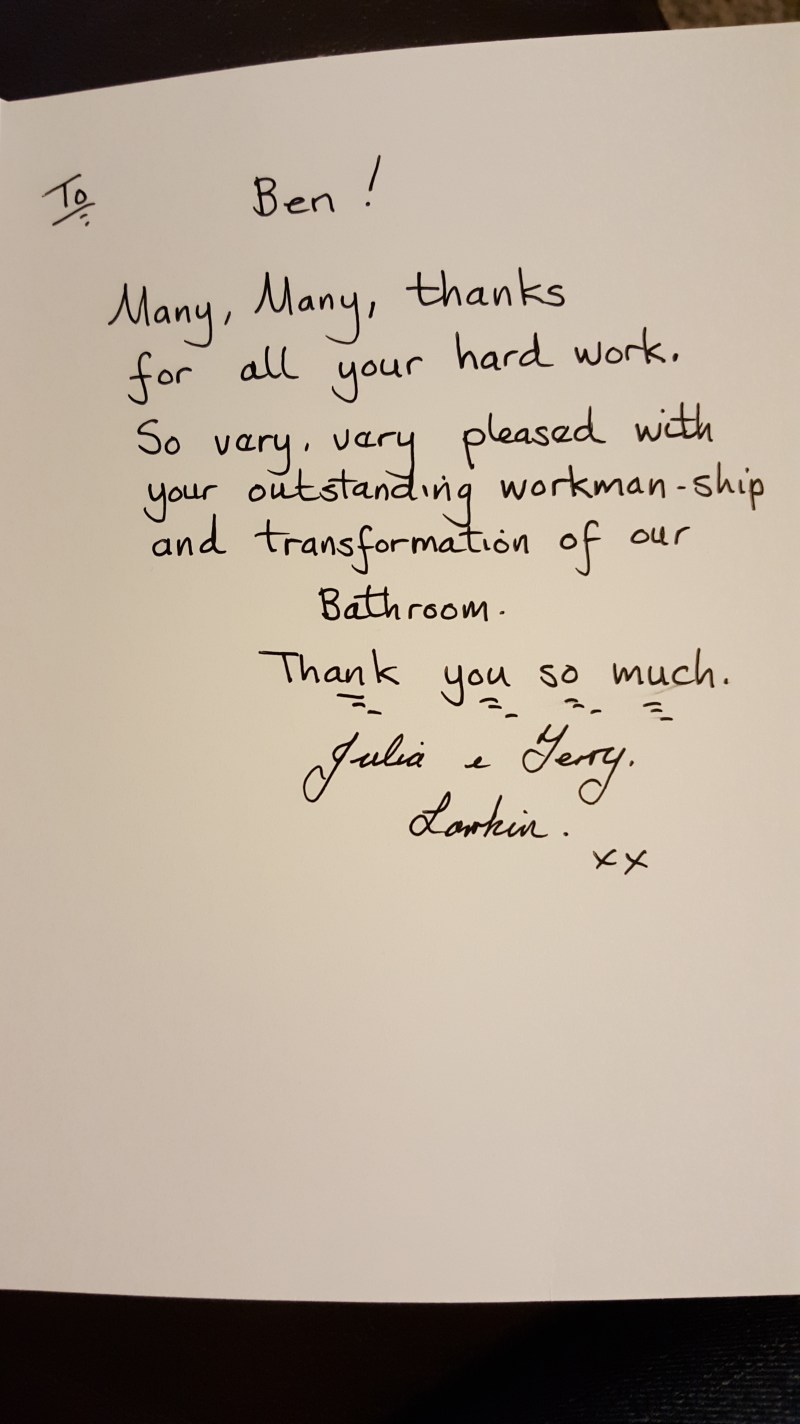 To Ben!
Many, Many, thanks
for all your hard work.
So very, very pleased with
your outstanding workman-ship
and transformation of our
Bathroom.
Thank you so much.
Julia & Terry.
Larkin.
xx